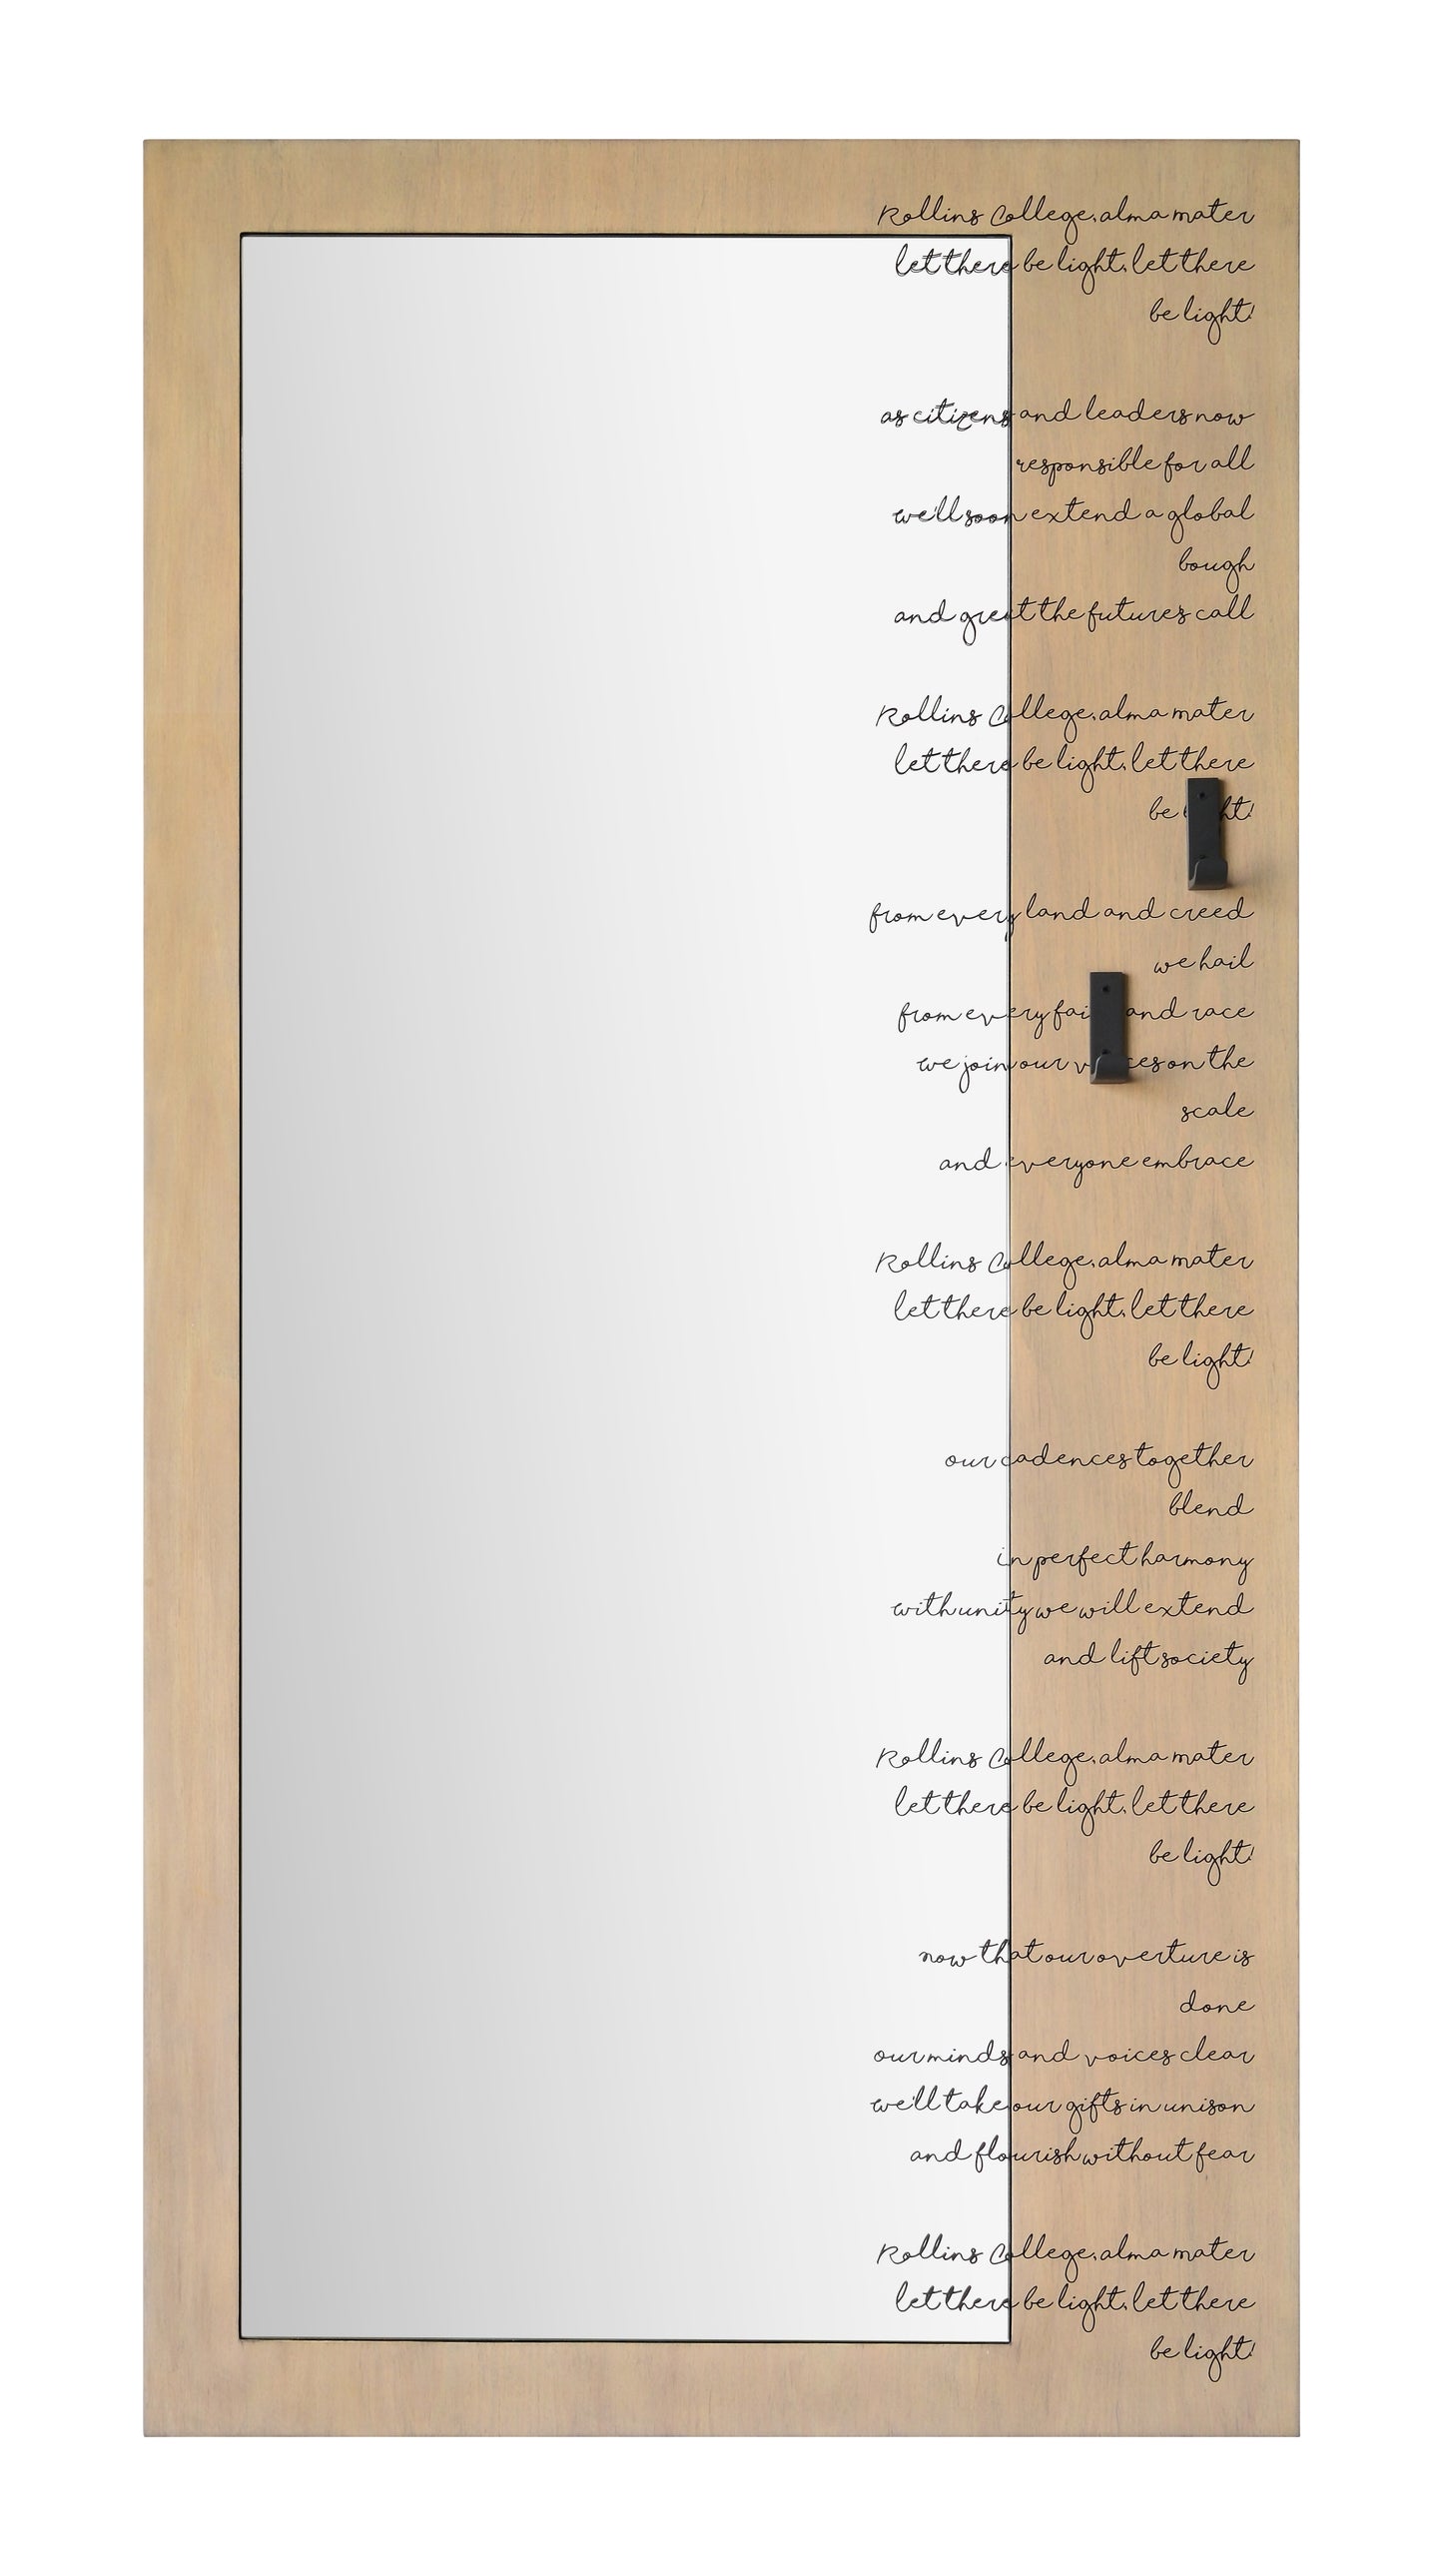 Rollins College, alma mater
let there be light, let there
be light!
as citizens and leaders now
responsible for all
we'll soon extend a global
bough
and greet the futures call
Rollins College, alma mater
let there be light, let there
be light!
from every land and creed
we hail
from every faith and race
we join our voices on the
scale
and everyone embrace
Rollins College, alma mater
let there be light, let there
be light!
our cadences together
blend
in perfect harmony
with unity we will extend
and lift society
Rollins College, alma mater
let there be light, let there
be light!
now that our overture is
done
our minds and voices clear
we'll take our gifts in unison
and flourish without fear
Rollins College, alma mater
let there be light, let there
be light!